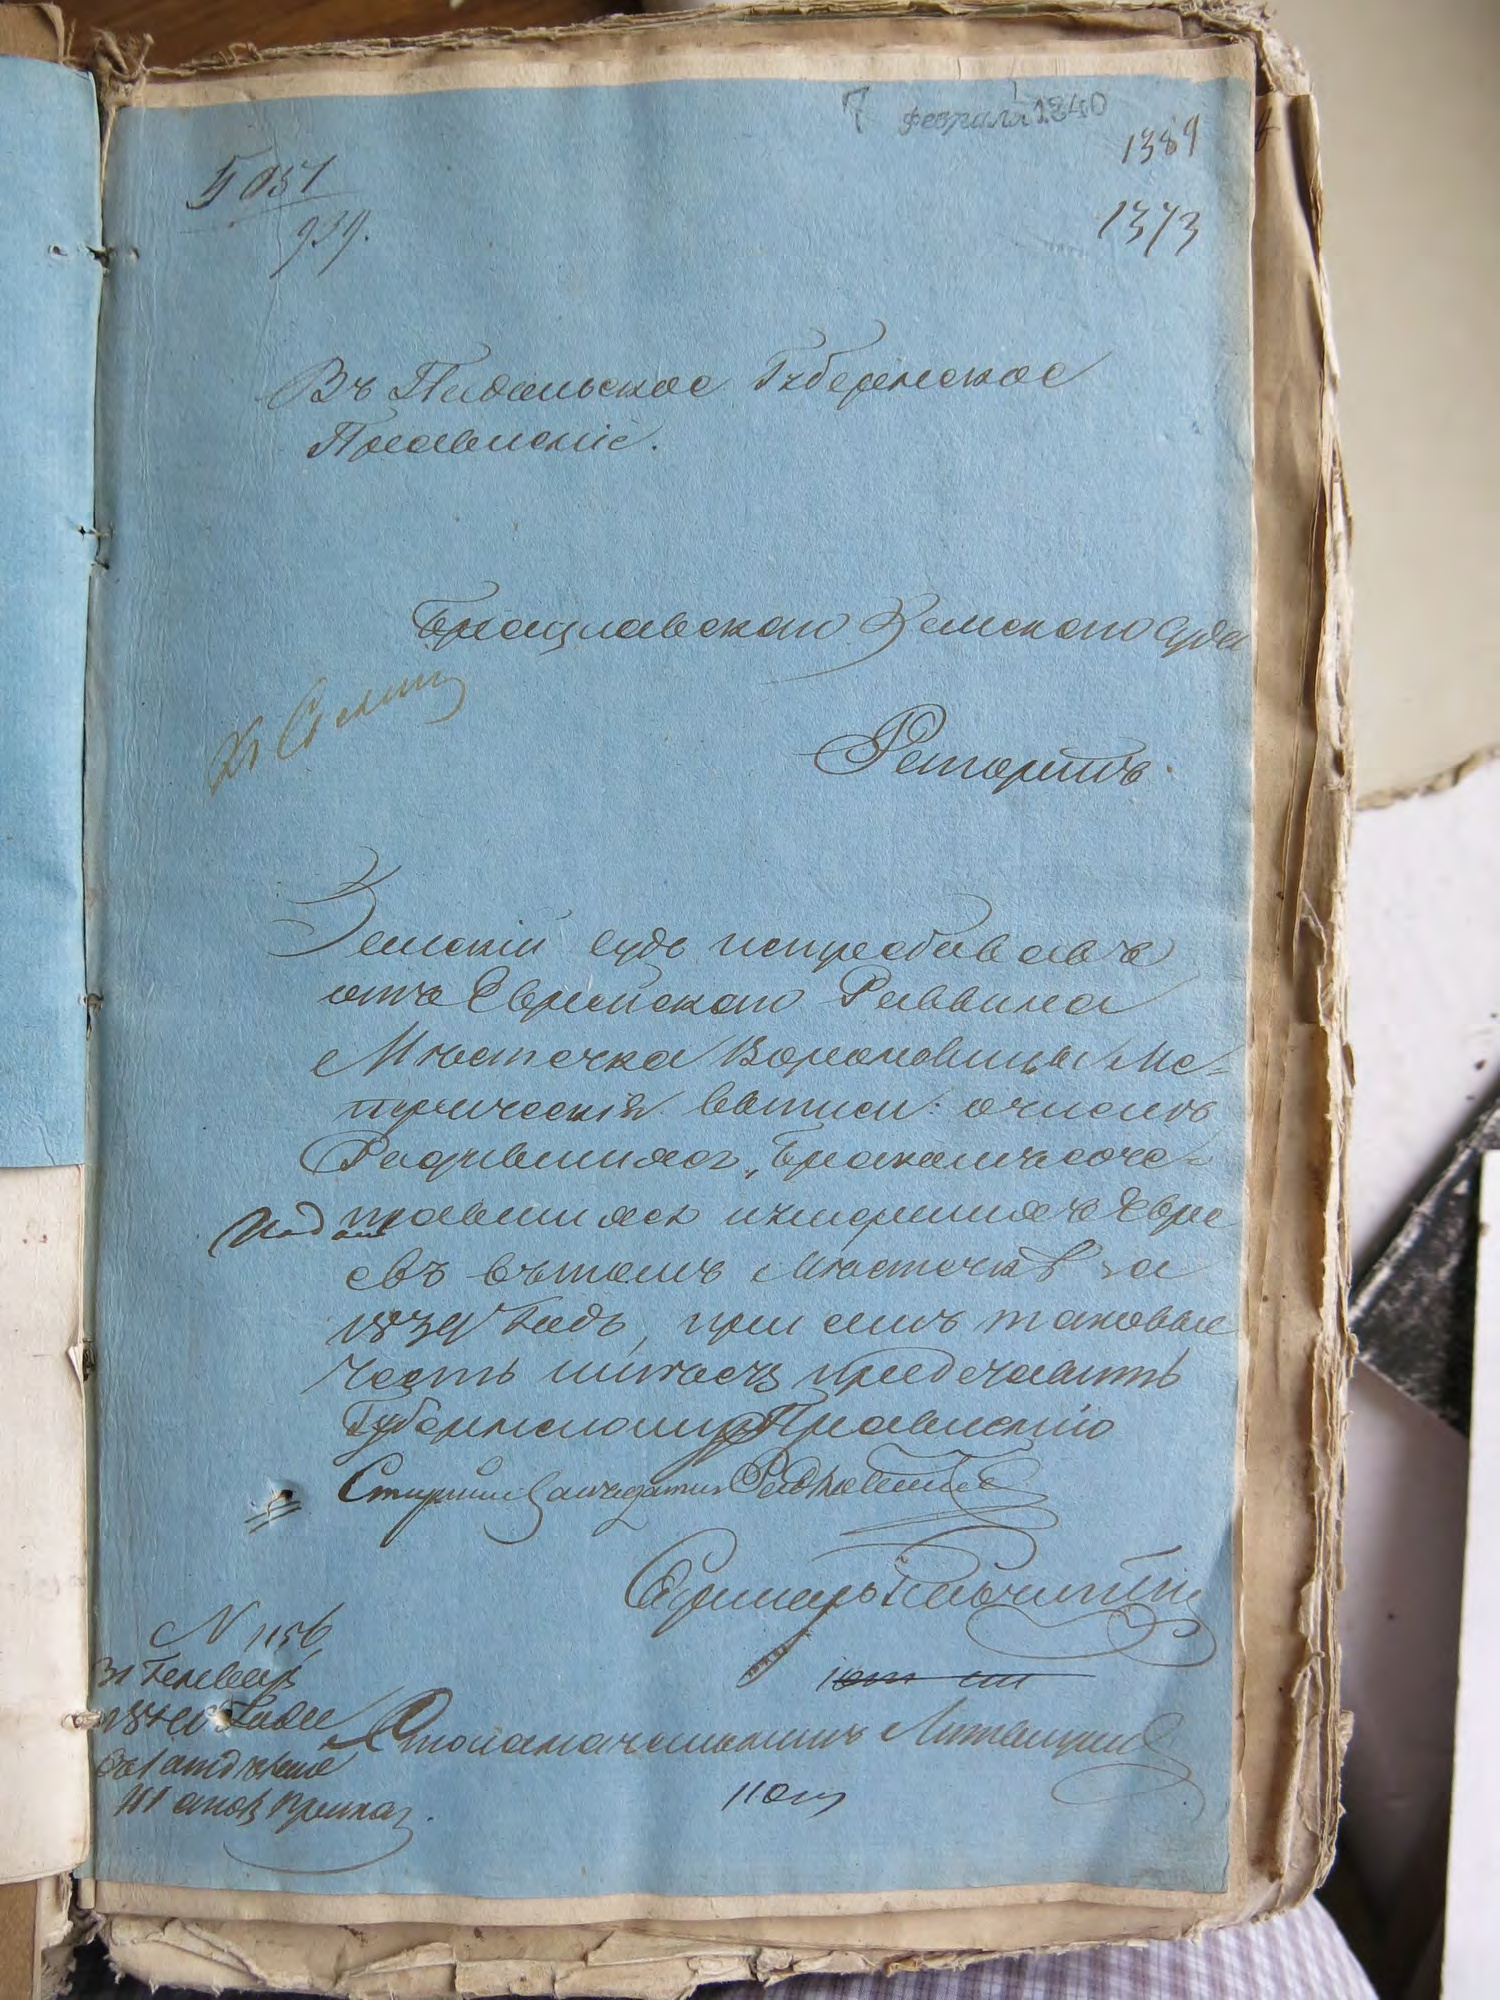 7 февраля 1840
1389
5051
939.
1373
Въ Подольское Губернское
Правленіе.
Брацлавскаго Земскаго Суда
Рапортъ.
Земскій судъ истребовавъ
отъ Еврейскаго Раввина
Мѣстечка Вороновицы Ме-
трическія выписи: о числѣ
Родившихся, бракомъ соче-
тавшихся и умершихъ Евре
евъ въ томъ Мѣстечкѣ за
1839 Годъ, при семъ таковые
честь имѣетъ представить
Губернскому Правленію
Старшій Засѣдатель
Секретарь
N 1156
31 Генваря
1840 Года
Столоначальникъ